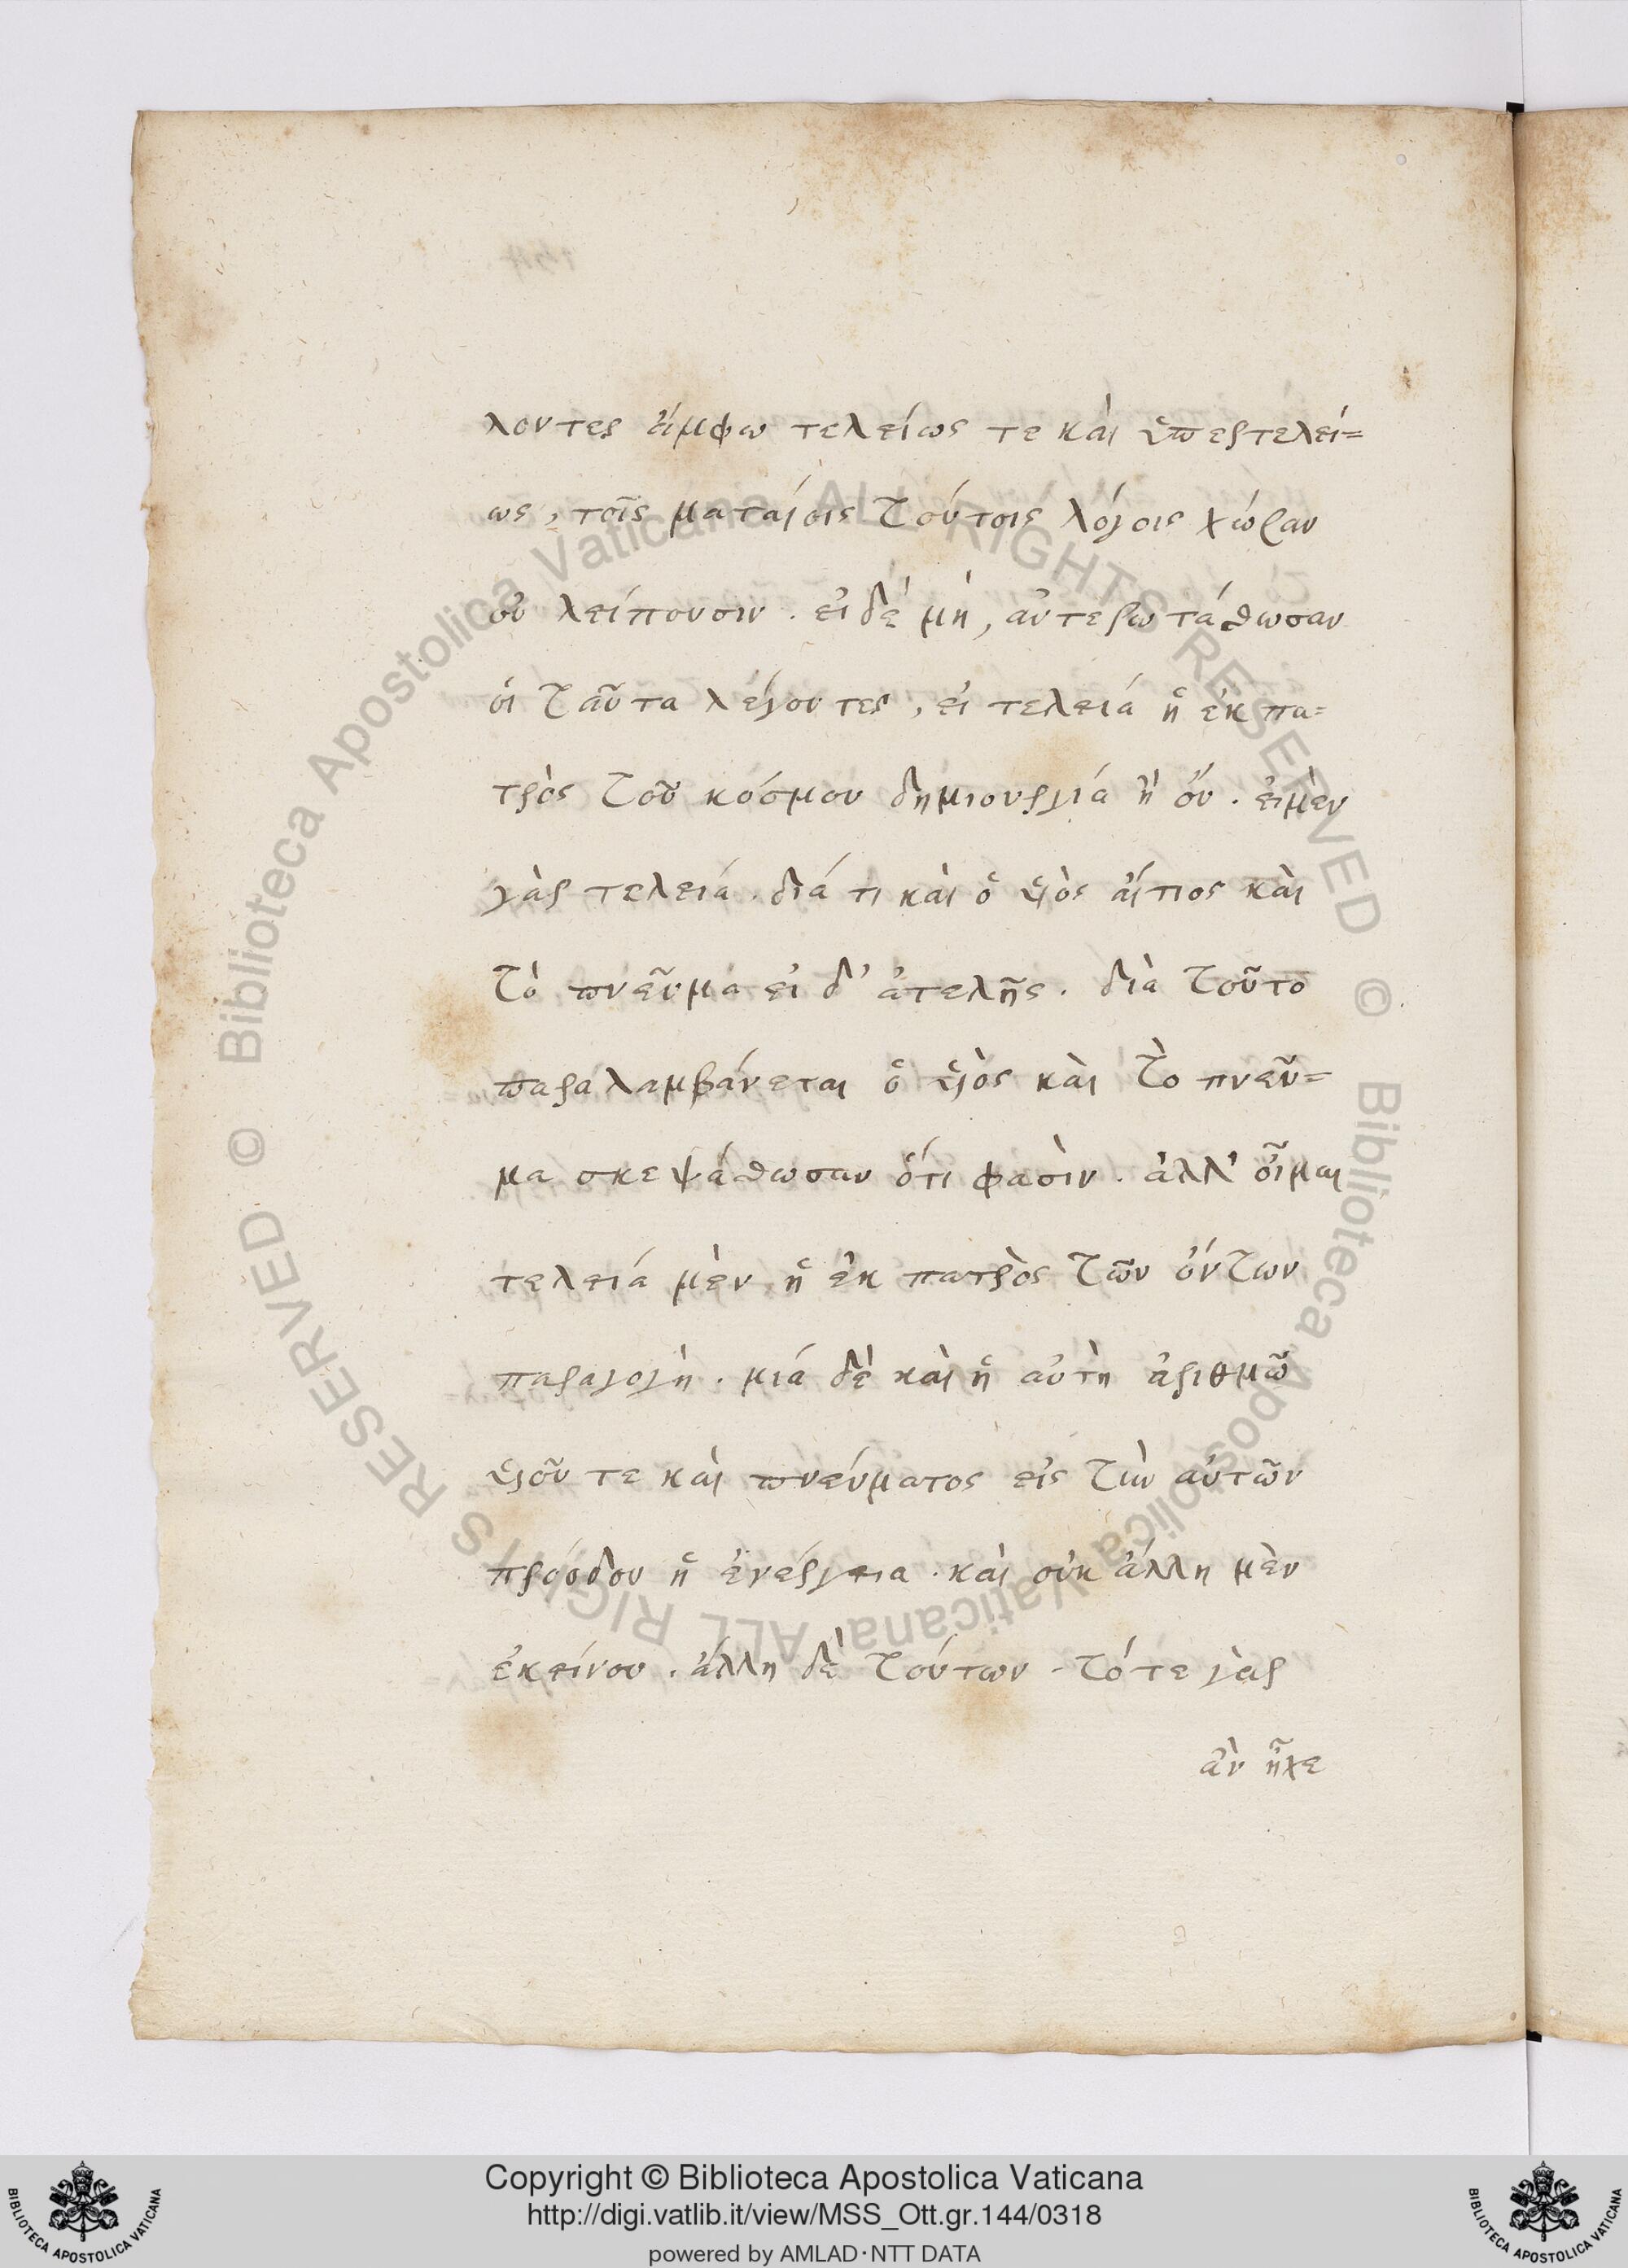 λοντες ἄμφω τελείως τε καὶ ὑπερτελεί=
ως, τοῖς ματαίοις τούτοις λόγοις χώραν
οὐ λείπουσιν. εἰ δέ μὴ, ἀντερωτάσθωσαν
οἱ ταῦτα λέγοντες, εἰ τελειά ἡ ἐκ πα=
τρὸς τοῦ κόσμου δημιουργιά ἢ οὔ. εἰμὲν
γὰρ τελειά. διά τι καὶ ὁ ὑιὸς αἴτιος καὶ
τὸ πνεῦμα εἰ δ' ἀτελῆς. διὰ τοῦτο
παραλαμβάνεται ὁ ὑιὸς καὶ τὸ πνεῦ=
μα σκεψάσθωσαν ὅτι φασὶν. ἀλλ' οἶμαι
τελειά μὲν ἡ ἐκ πατρὸς τῶν ὄντων
παραγογὴ. μιά δὲ καὶ ἡ αὐτὴ ἀριθμῶ
ὑιοῦ τε καὶ πνεύματος εἰς τὴν αὐτῶν
πρόοδον ἡ ἐνέργεια. καὶ οὐκ ἄλλη μὲν
ἐκείνου. ἄλλη δὲ τούτων. τότε γὰρ
ἂν ἦχε
Copyright © Biblioteca Apostolica Vaticana
http://digi.vatlib.it/view/MSS_Ott.gr.144/0318
powered by AMLAD·NTT DATA
BIBLIOTECA APOSTOLICA VATICANA
BIBLIOTECA APOSTOLICA VATICANA
© Biblioteca Apostolica Vaticana ALL RIGHTS RESERVED
© Biblioteca Apostolica Vaticana ALL RIGHTS RESERVED